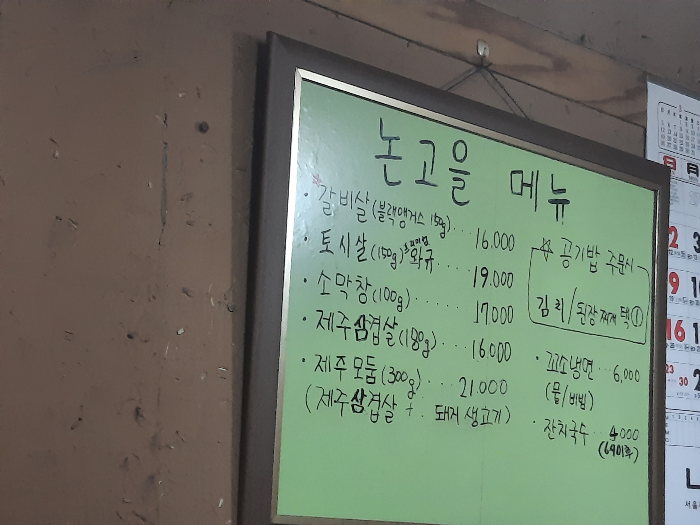 논고을 메뉴
· 갈비살(블랙앵거스 150g)... 16.000
· 토시살(150g) 화규.... 19.000
· 소막창(100g)...... 17.000
· 제주삼겹살(180g).... 16.000
· 제주모둠(300g)... 21.000
(제주삼겹살 + 돼지 생고기)
☆ 공기밥 주문시
김치/된장찌개 택①
· 꼬소냉면... 6,000
(물/비빔)
· 잔치국수... 4,000
日 月
2 3
9
16
23 30